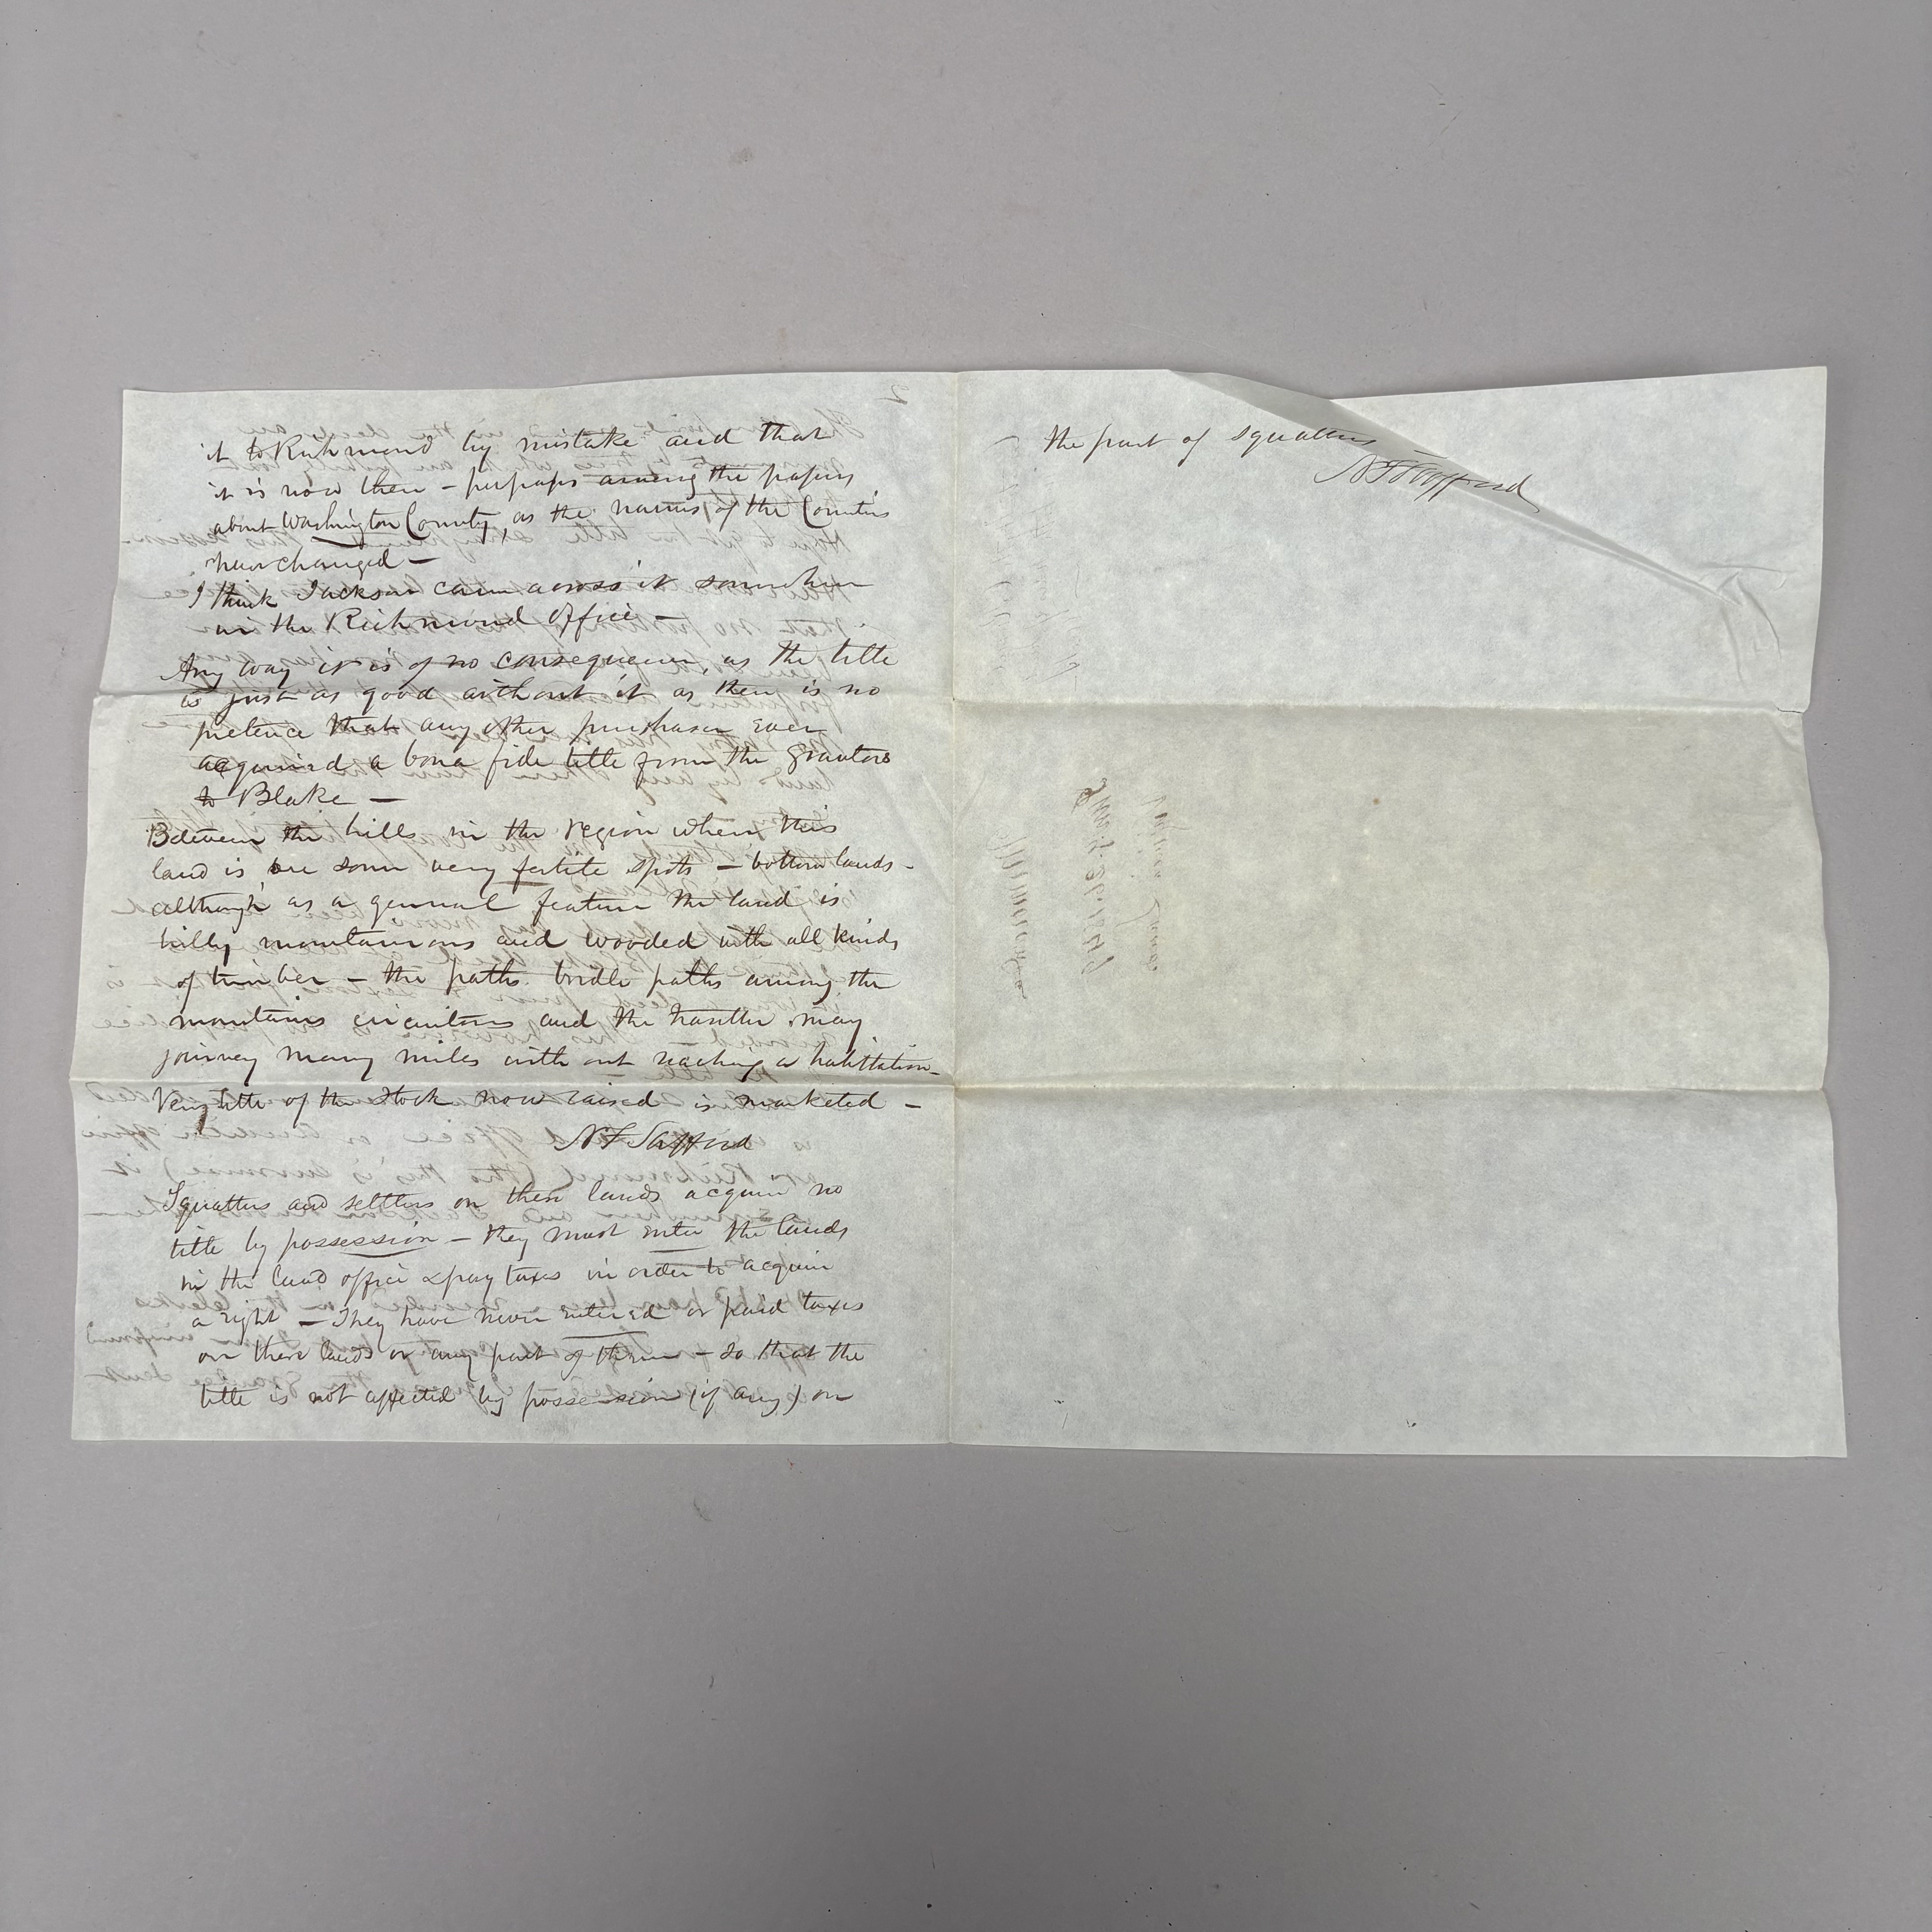 it to Richmond by mistake and that
it is now there – perhaps among the papers
about Washington County, as the names of the Counties
have changed –
I think Jackson came across it somewhere
in the Richmond Office –
Any way it is of no consequence, as the title
is just as good without it as there is no
pretence that any other purchaser ever
acquired a bona fide title from the Grantors
to Blake –
Between the hills in the region where this
land is are some very fertile spots – bottom lands –
although as a general feature the land is
hilly mountainous and wooded with all kinds
of timber – the paths bridle paths among the
mountains circuitous and the traveller may
journey many miles with out reaching a habitation –
Very little of the stock now raised is marketed –
N F Safford
Squatters and settlers on these lands acquire no
title by possession – they must enter the lands
in the land office & pay taxes in order to acquire
a right – They have never entered or paid taxes
on these lands or any part of them – so that the
title is not affected by possession (if any) on
the part of squatters
N F Safford